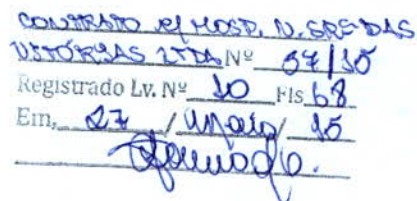 CONTRATO C/ HOSP. N. SRª DAS
VITÓRIAS LTDA Nº 57/15
Registrado Lv. Nº 10 Fls 68
Em, 27 / Maio / 15